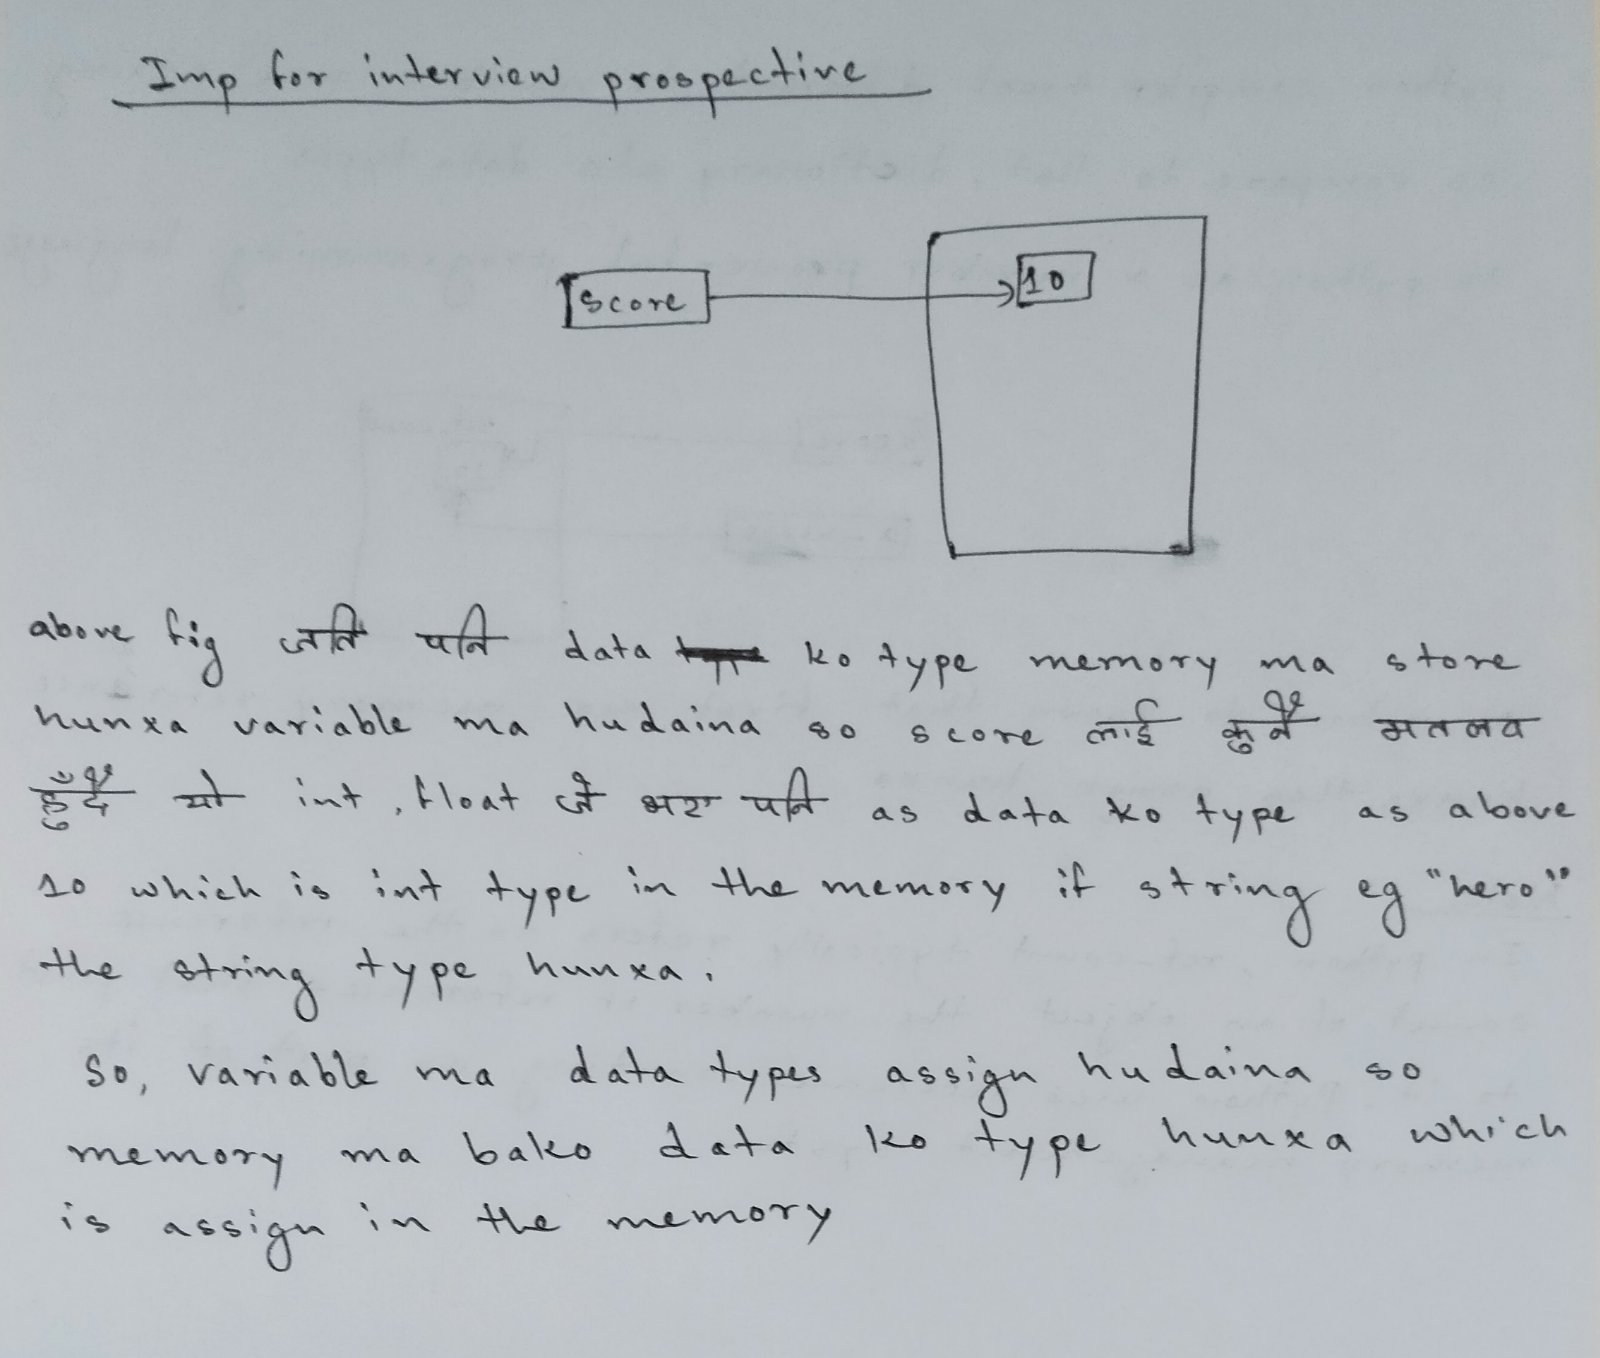 Imp for interview prospective
score
10
above fig जति पनि data ko type memory ma store
hunxa variable ma hudaina so score लाई कुनै मतलव
हुँदै यो int, float जे भए पनि as data ko type as above
10 which is int type in the memory if string eg "hero"
the string type hunxa.
So, variable ma data types assign hudaina so
memory ma bako data ko type hunxa which
is assign in the memory